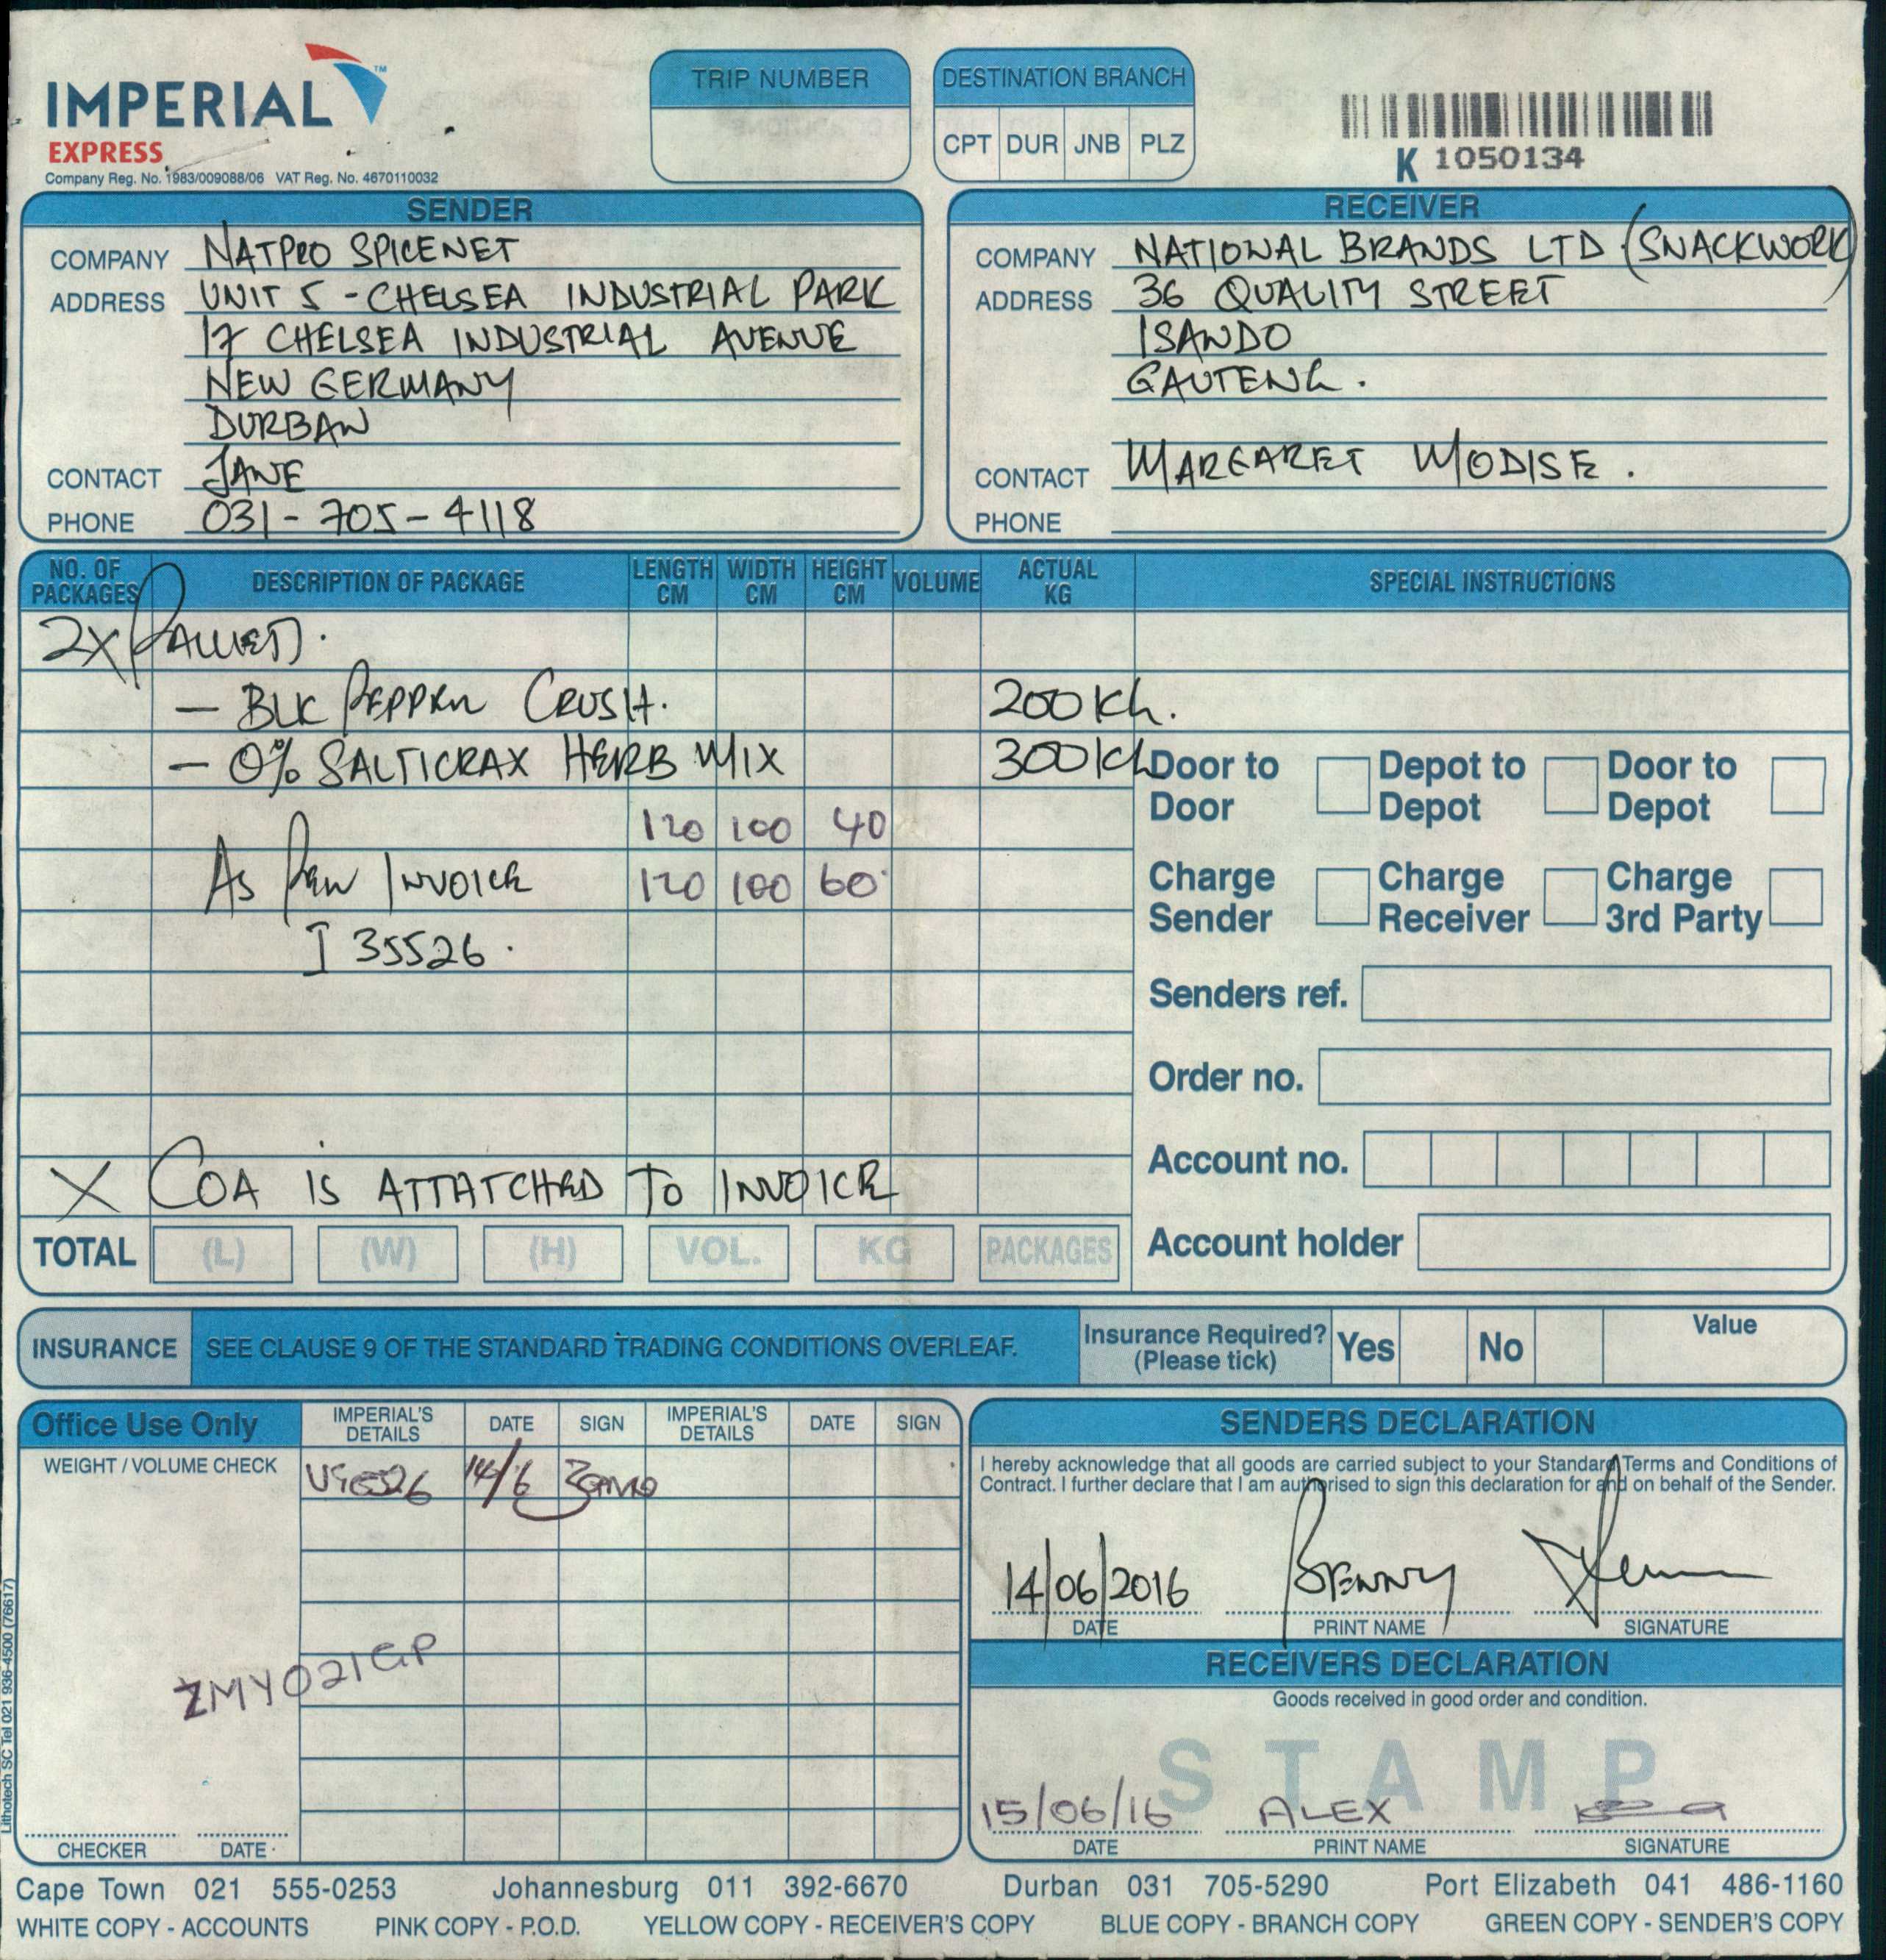 IMPERIAL™
EXPRESS
Company Reg. No. 1983/009088/06 VAT Reg. No. 4670110032
TRIP NUMBER
DESTINATION BRANCH
CPT DUR JNB PLZ
K 1050134
SENDER
COMPANY NATPRO SPICENET
ADDRESS UNIT 5 - CHELSEA INDUSTRIAL PARK
17 CHELSEA INDUSTRIAL AVENUE
NEW GERMANY
DURBAN
CONTACT JANE
PHONE 031-705-4118
RECEIVER
COMPANY NATIONAL BRANDS LTD (SNACKWORK)
ADDRESS 36 QUALITY STREET
ISANDO
GAUTENG.
CONTACT MARGARET MODISE.
PHONE
NO. OF PACKAGES DESCRIPTION OF PACKAGE LENGTH CM WIDTH CM HEIGHT CM VOLUME ACTUAL KG SPECIAL INSTRUCTIONS
2X PALLETS.
- BLK PEPPER CRUSH. 200KG.
- 0% SALTICRAX HERB MIX 300KG
120 100 40
AS PER INVOICE 120 100 60
I 35526.
X COA IS ATTATCHED TO INVOICE
TOTAL (L) (W) (H) VOL. KG PACKAGES
Door to Door Depot to Depot Door to Depot
Charge Sender Charge Receiver Charge 3rd Party
Senders ref.
Order no.
Account no.
Account holder
INSURANCE SEE CLAUSE 9 OF THE STANDARD TRADING CONDITIONS OVERLEAF. Insurance Required? (Please tick) Yes No Value
Office Use Only IMPERIAL'S DETAILS DATE SIGN IMPERIAL'S DETAILS DATE SIGN
WEIGHT / VOLUME CHECK 14/6
ZMY021GP
CHECKER DATE
SENDERS DECLARATION
I hereby acknowledge that all goods are carried subject to your Standard Terms and Conditions of
Contract. I further declare that I am authorised to sign this declaration for and on behalf of the Sender.
14/06/2016 BENNY
DATE PRINT NAME SIGNATURE
RECEIVERS DECLARATION
Goods received in good order and condition.
STAMP
15/06/16 ALEX
DATE PRINT NAME SIGNATURE
Lithotech SC Tel 021 936-4500 (76617)
Cape Town 021 555-0253 Johannesburg 011 392-6670 Durban 031 705-5290 Port Elizabeth 041 486-1160
WHITE COPY - ACCOUNTS PINK COPY - P.O.D. YELLOW COPY - RECEIVER'S COPY BLUE COPY - BRANCH COPY GREEN COPY - SENDER'S COPY